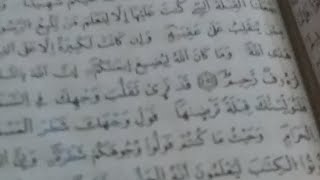 القبلة التي كنت عليها إلا لنعلم من يتبع الرسول
ينقلب على عقبيه وإن كانت لكبيرة إلا على
هدى الله وما كان الله ليضيع إيمنكم إن الله بالناس
لرءوف رحيم قد نرى تقلب وجهك في السماء
فلنولينك قبلة ترضىها فول وجهك شطر المسجد
الحرام وحيث ما كنتم فولوا وجوهكم شطره وإن
أوتوا الكتب ليعلمون أنه الحق